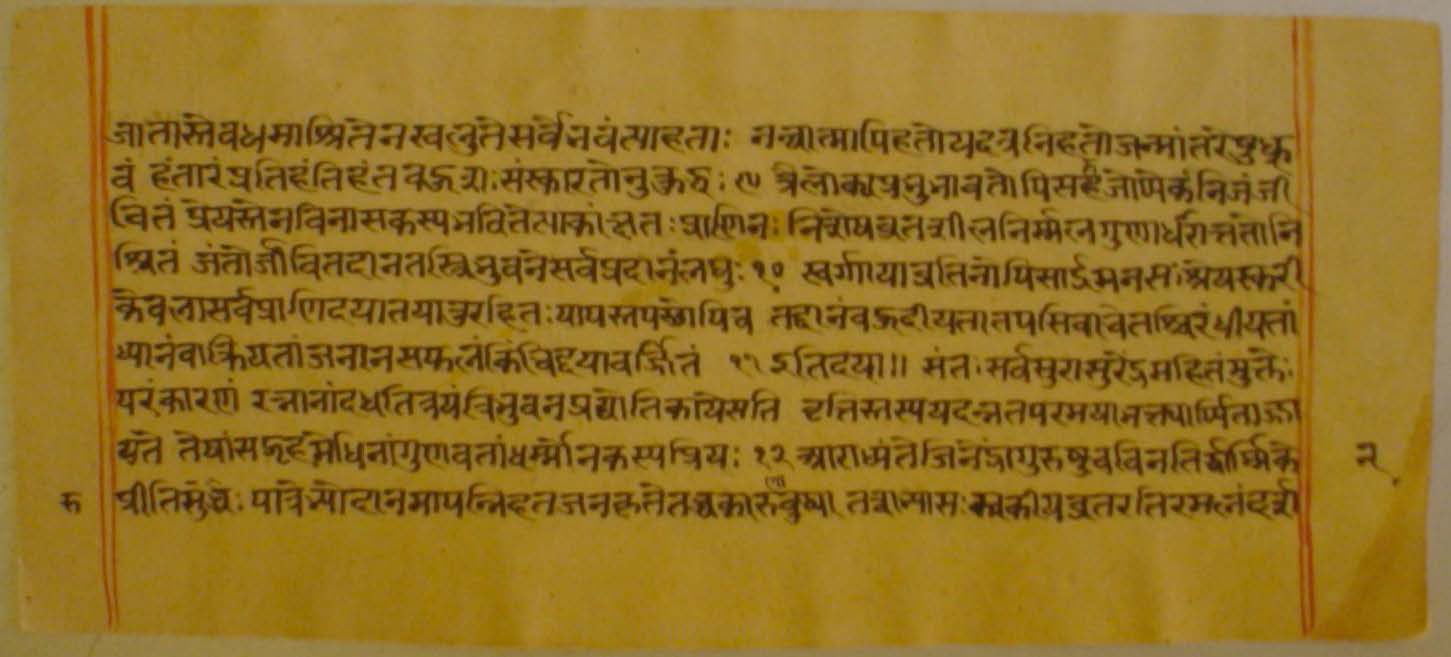 जातास्तेवधमाश्रितेनखलुतेसर्वेभवंत्याहताः नन्वात्मापिहतोयदत्रनिहतोजन्मांतरेषुध्रु
वं हंतारंप्रतिहंतिहंतबहुशःसंस्कारतोनुक्रुधः ९ त्रैलोक्यप्रभुभावतोपिसरुजोप्येकंनिजंजी
वितं प्रेयस्तेनविनासकस्यभवितेत्याकांक्षतःप्राणिनः निःशेषव्रतशीलनिर्मलगुणाधारात्ततोनि
श्चितं जंतोर्जीवितदानतस्त्रिभुवनेसर्वप्रदानंलघुः १० स्वर्गायाव्रतिनोपिसार्द्रमनसःश्रेयस्करी
केवलासर्वप्राणिदयातयातुरहितःपापस्तपस्थोपिच तद्दानंबहुदीयतातपसिवाचेतश्चिरंधीयतां
ध्यानंवाक्रियतांजनानसफलंकिंचिद्दयावर्जितं ११ इतिदया॥ संतःसर्वसुरासुरेंद्रमहितंमुक्तेः
परंकारणं रत्नानांदधतित्रयंत्रिभुवनप्रद्योतिकायेसति वृत्तिस्तस्ययदन्नतपरमयाभक्त्यार्पिताज्जा
यते तेषांसद्गृहमेधिनांगुणवतांधर्म्मोनकस्यप्रियः १२ आराध्यंतेजिनेंद्रागुरुषुचविनतिर्द्धार्म्मिके
प्रीतिमुच्चैः पात्रेभ्योदानमापन्निहतजनकृतेतच्चकारुण्यबुध्या तत्वाभ्यासःस्वकीयव्रतरतिरमलंदर्श
२